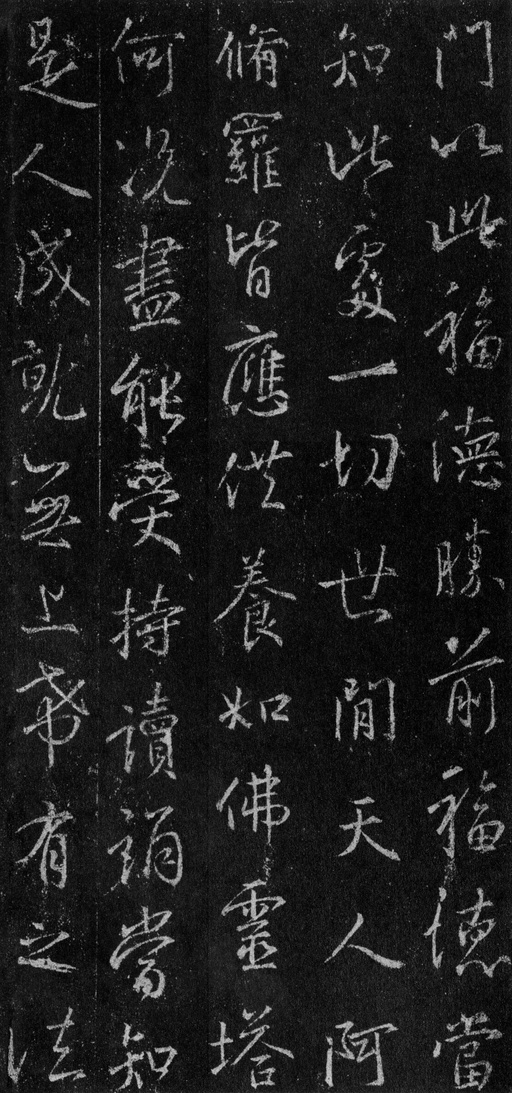 門以此福德勝前福德當
知此處一切世間天人阿
脩羅皆應供養如佛靈塔
何况盡能受持讀誦當知
是人成就無上希有之法